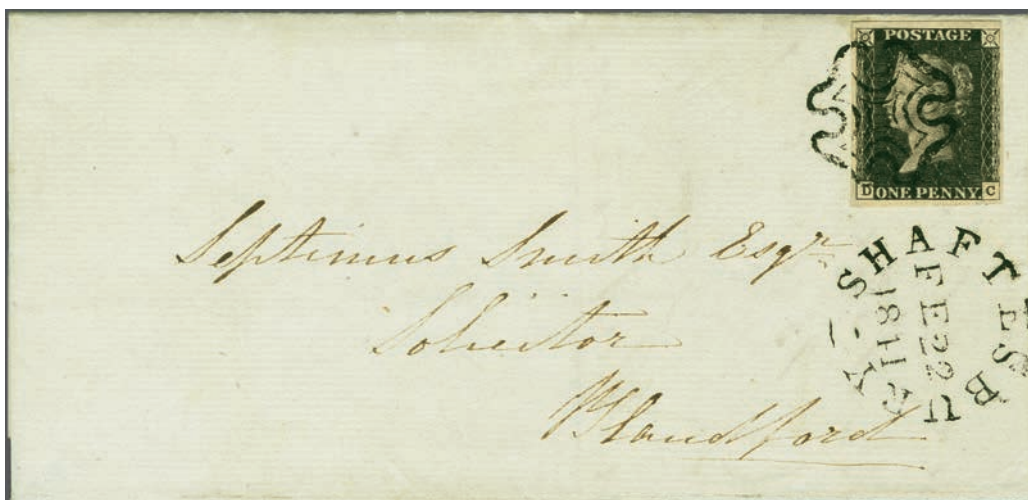 POSTAGE
D ONE PENNY C
Septimus Smith Esqr
Solicitor
Blandford
SHAFTESBURY
FE 22
1841